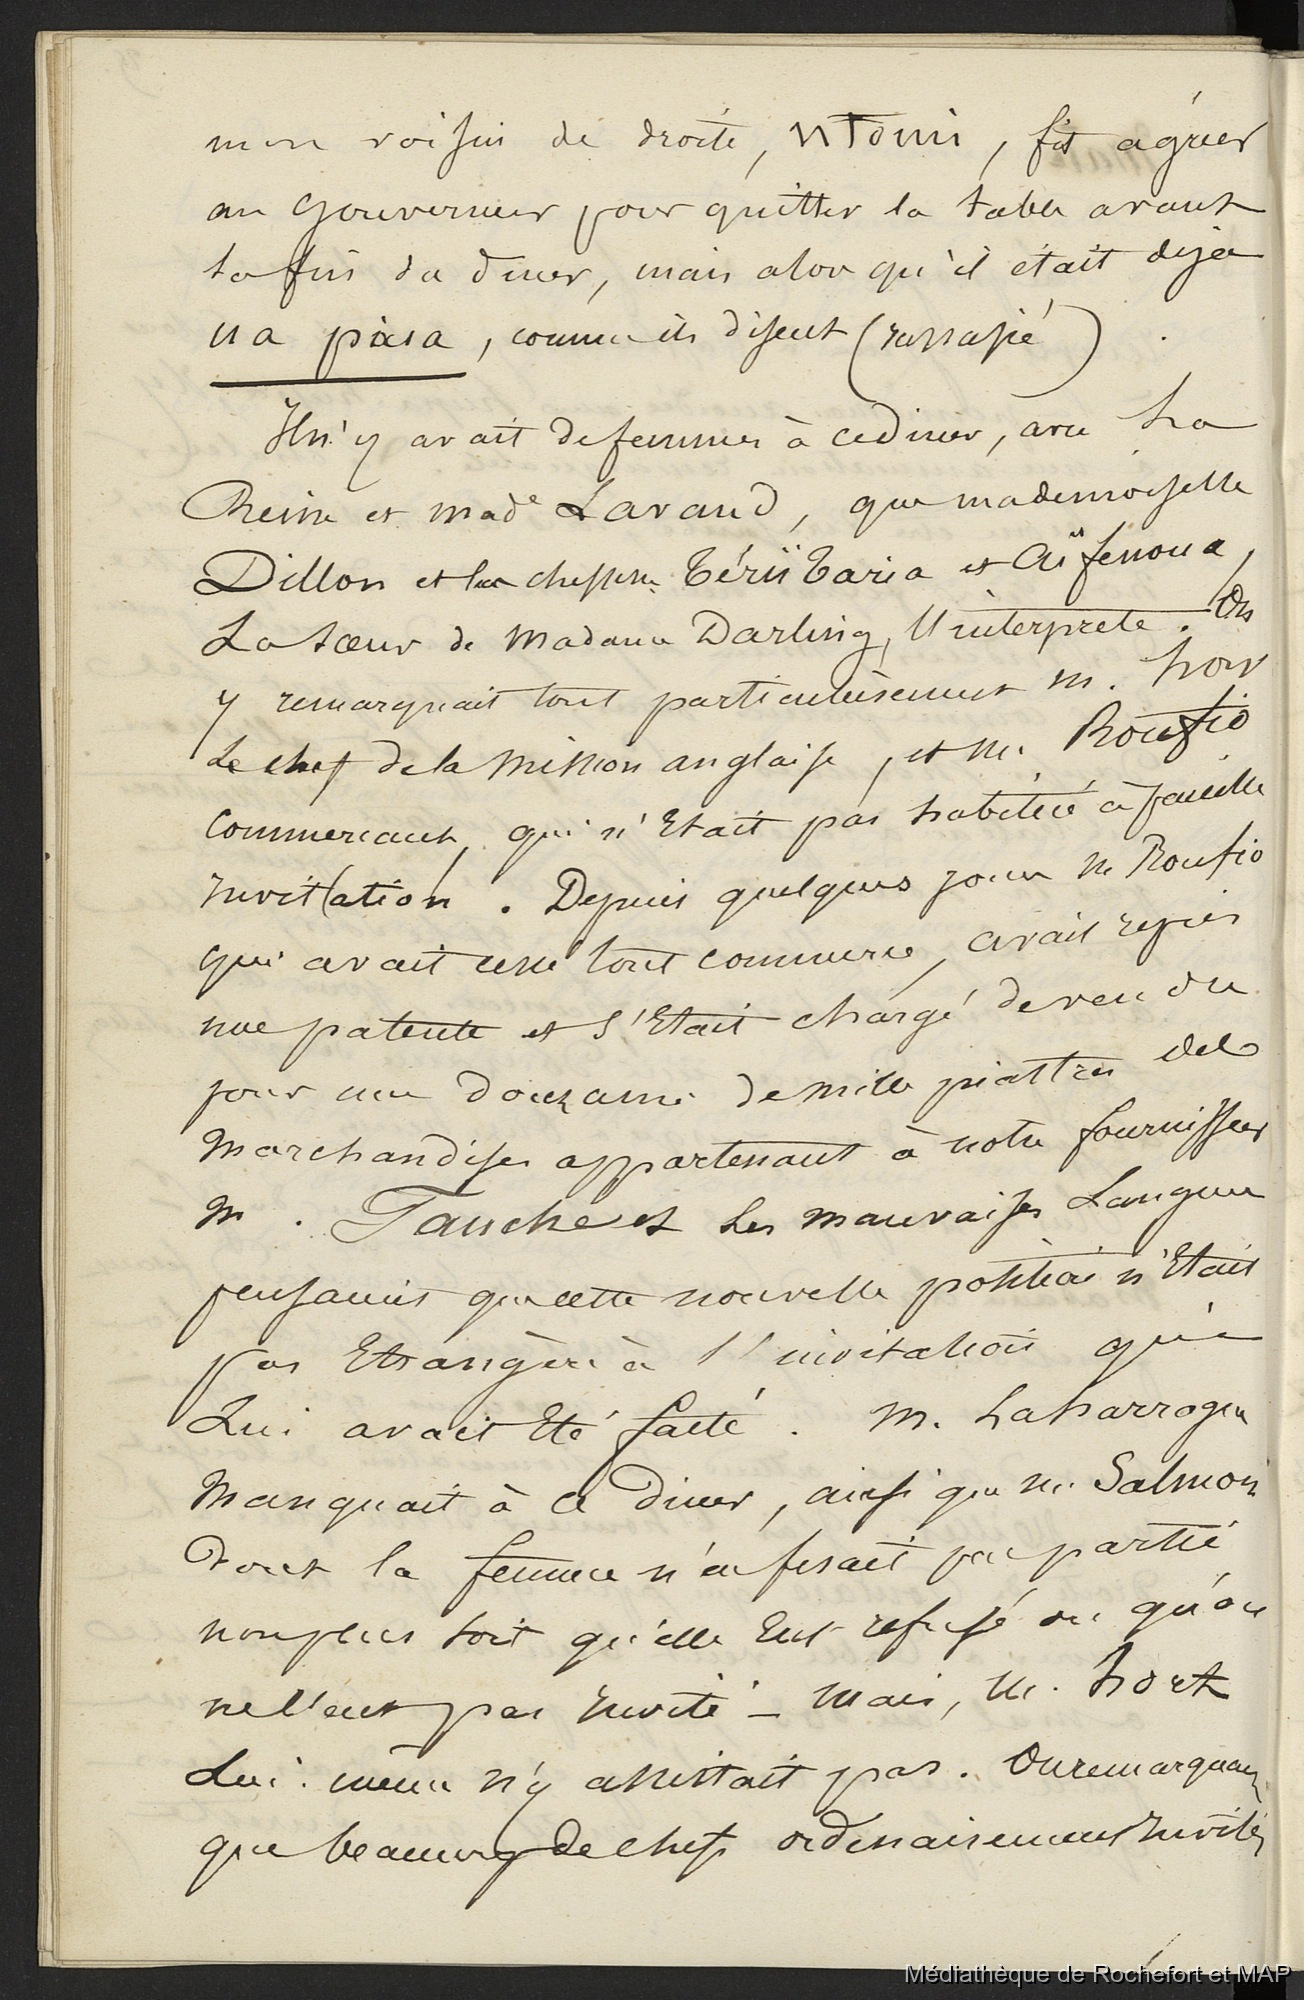 mon voisin de droite, ntoni, fit agréer
au gouverneur pour quitter la table avant
la fin du diner, mais alor qu'il était dejà
ua piaa, comme ils disent (rassasié).
Il n'y avait de femmes à ce diner, avec La
Reine et made Lavaud, que mademoiselle
Dillon et les cheffesse Tériï Taria et Aïfenoua,
La sœur de Madame Darling, l'interprete. On
y remarquait tout particulièrement m. how
Le chef de la Mission anglaise, et m. Roufio
Commercant, qui n'Etait pas habitué à pareille
Invitation. Depuis quelques jours m Roufio
qui avait cessé tout commerce, avait repris
une patente et s'Etait chargé de vendre
pour une douzaine de mille piastres de
Marchandises appartenant à notre fournisseur
M. Fauche et Les mauvaises Langues
pensaient que cette nouvelle position n'Etait
pas Etrangère à l'invitation qui
Lui avait Eté faite. M. Laharrague
Manquait à ce diner, ainsi que m. Salmon
dont la femme n'en fesait pas partie
non plus soit qu'elle Eut refusé ou qu'on
ne l'eut pas Invité _ mais, m. hort
Lui même n'y assistait pas. On remarquait
que beaucoup de chefs ordinairement Invités
Médiathèque de Rochefort et MAP